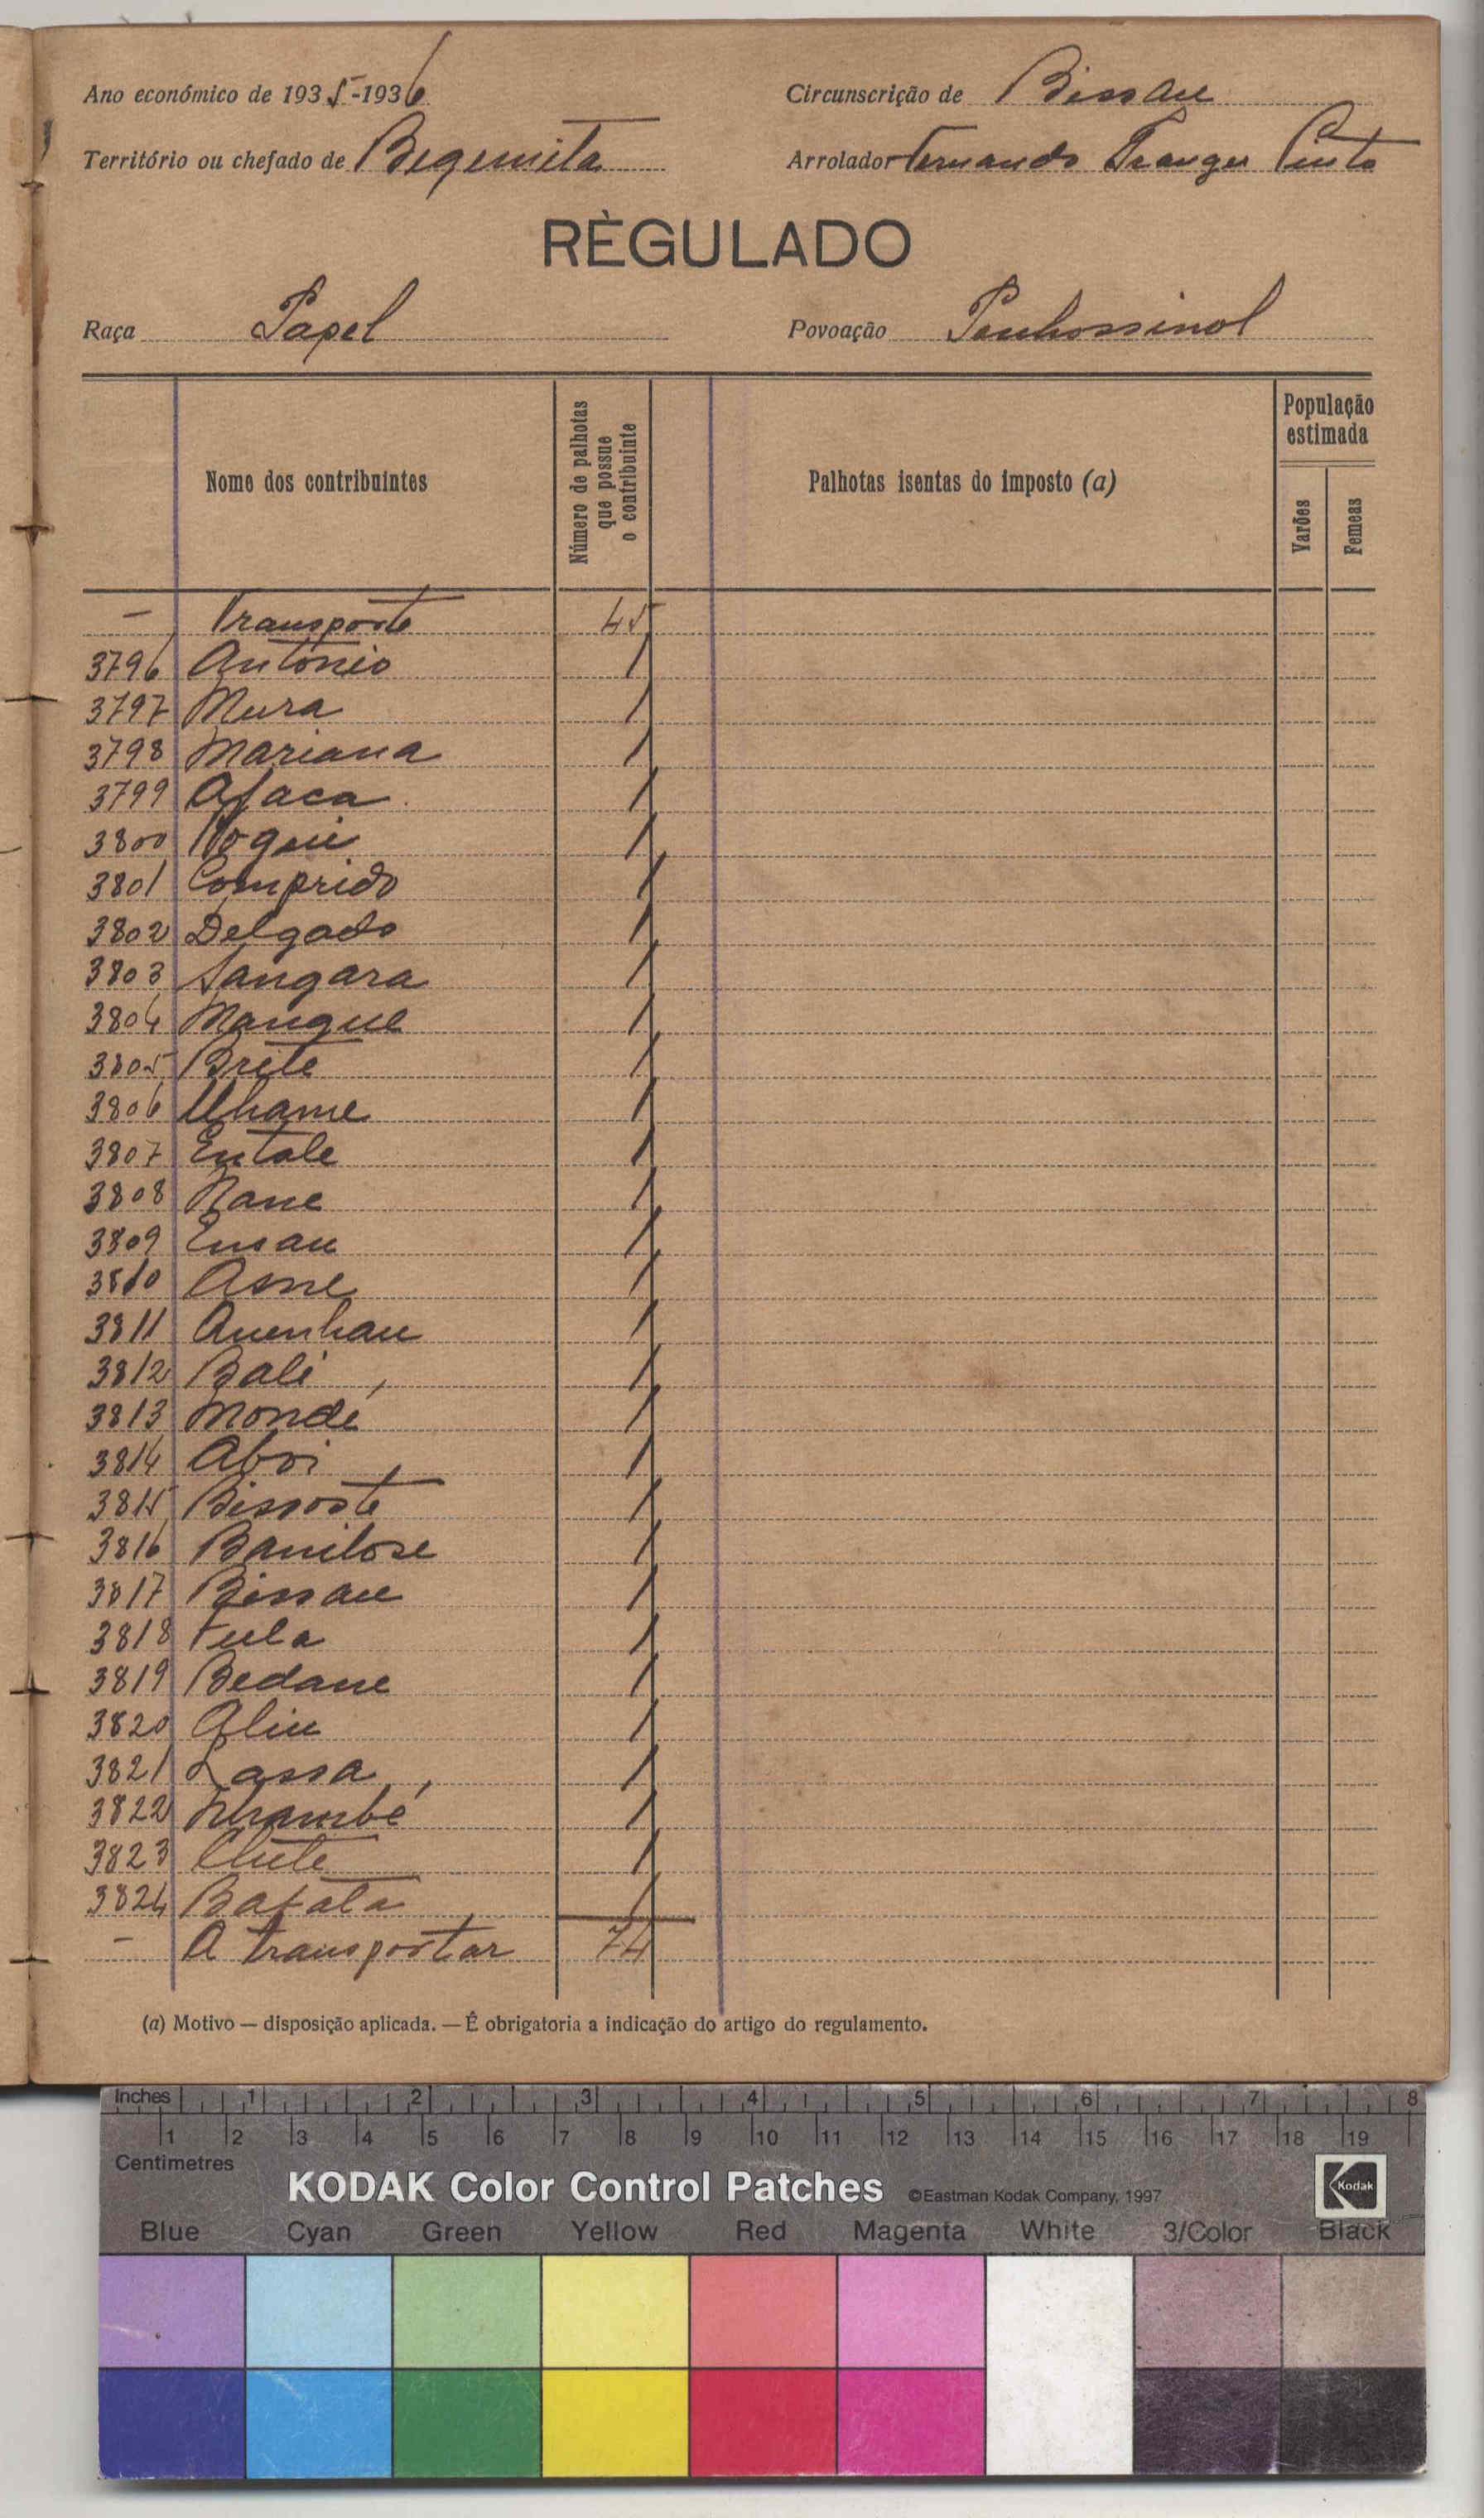 Ano económico de 1935-1936 Circunscrição de Bissau
Território ou chefado de Begemita Arrolador Fernando Pranger Pinto
RÈGULADO
Raça Papel Povoação Penhossinol
Nome dos contribuintes Número de palhotas que possue o contribuinte Palhotas isentas do imposto (a) População estimada Varões Femeas
- Transporte 45
3796 António 1
3797 Mura 1
3798 Mariana 1
3799 Afaca 1
3800 Noqui 1
3801 Comprido 1
3802 Delgado 1
3803 Sangara 1
3804 Mangul 1
3805 Brite 1
3806 Uhame 1
3807 Entale 1
3808 Nane 1
3809 Ensau 1
3810 Asne 1
3811 Auenhau 1
3812 Balé 1
3813 Mondé 1
3814 Aboi 1
3815 Bissoste 1
3816 Banilose 1
3817 Bissau 1
3818 Fula 1
3819 Bedane 1
3820 Aliu 1
3821 Lassa 1
3822 1
3823 Clute 1
3824 Bafata 1
- A transportar 74
(a) Motivo — disposição aplicada. — É obrigatoria a indicação do artigo do regulamento.
Inches 1 2 3 4 5 6 7 8
1 2 3 4 5 6 7 8 9 10 11 12 13 14 15 16 17 18 19
Centimetres
KODAK Color Control Patches ©Eastman Kodak Company, 1997 Kodak
Blue Cyan Green Yellow Red Magenta White 3/Color Black